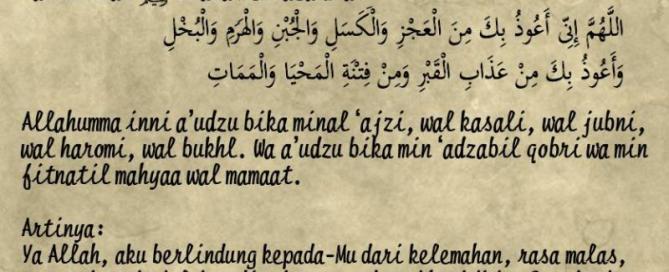 اللَّهُمَّ إِنِّى أَعُوذُ بِكَ مِنَ الْعَجْزِ وَالْكَسَلِ وَالْجُبْنِ وَالْهَرَمِ وَالْبُخْلِ
وَأَعُوذُ بِكَ مِنْ عَذَابِ الْقَبْرِ وَمِنْ فِتْنَةِ الْمَحْيَا وَالْمَمَاتِ
Allahumma inni a'udzu bika minal 'ajzi, wal kasali, wal jubni,
wal haromi, wal bukhl. Wa a'udzu bika min 'adzabil qobri wa min
fitnatil mahyaa wal mamaat.
Artinya:
Ya Allah, aku berlindung kepada-Mu dari kelemahan, rasa malas,